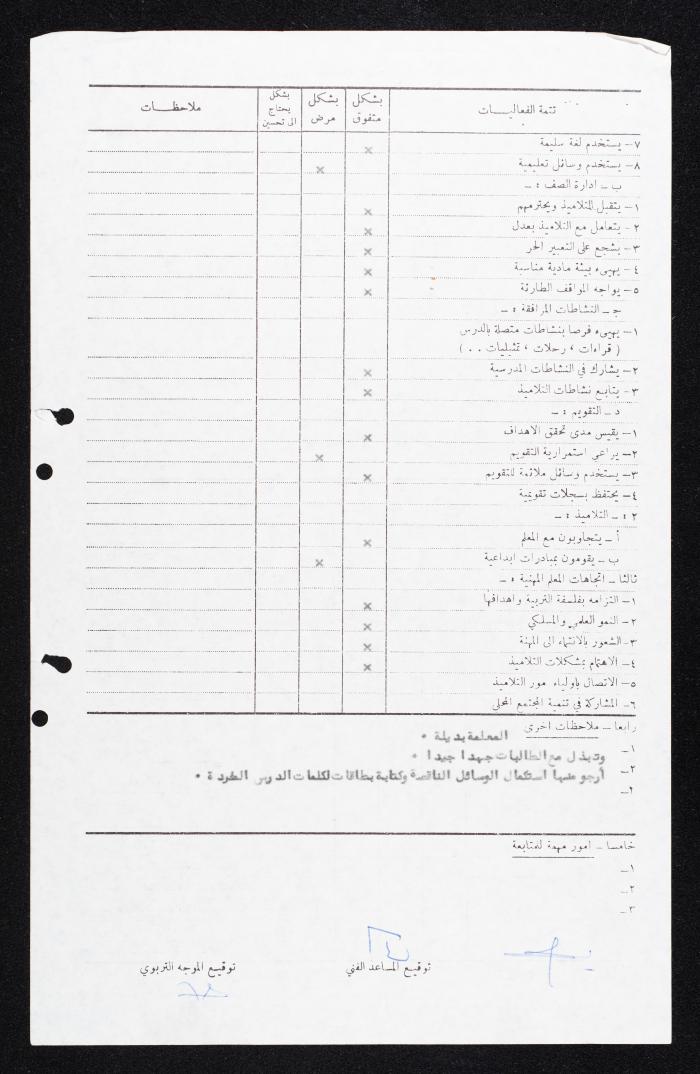 تتمة الفعاليـات
بشكل متفوق
بشكل مرض
بشكل يحتاج الى تحسين
ملاحظـات
٧- يستخدم لغة سليمة ×
٨- يستخدم وسائل تعليمية ×
ب - ادارة الصف : -
١- يتقبل التلاميذ ويحترمهم ×
٢- يتعامل مع التلاميذ بعدل ×
٣- يشجع على التعبير الحر ×
٤- يهيىء بيئة مادية مناسبة ×
٥- يواجه المواقف الطارئة ×
جـ - النشاطات المرافقة : -
١- يهيىء فرصا بنشاطات متصلة بالدرس
( قراءات ، رحلات ، تمثيليات . . )
٢- يشارك في النشاطات المدرسية ×
٣- يتابع نشاطات التلاميذ ×
د - التقويم : -
١- يقيس مدى تحقق الاهداف ×
٢- يراعي استمرارية التقويم ×
٣- يستخدم وسائل ملائمة للتقويم ×
٤- يحتفظ بسجلات تقويمية
٢ : - التلاميذ : -
أ - يتجاوبون مع المعلم ×
ب - يقومون بمبادرات ابداعية ×
ثالثا - اتجاهات المعلم المهنية : -
١- التزامه بفلسفة التربية واهدافها ×
٢- النمو العلمي والمسلكي ×
٣- الشعور بالانتماء الى المهنة ×
٤- الاهتمام بمشكلات التلاميذ ×
٥- الاتصال باولياء مور التلاميذ
٦- المشاركة في تنمية المجتمع المحلي
رابعا - ملاحظات اخرى
المعلمة بديلة •
١-
وتبذل مع الطالبات جهدا جيدا •
٢-
أرجو منها استكمال الوسائل الناقصة وكتابة بطاقات لكلمات الدرس
٢-
خامسا - امور مهمة للمتابعة
١-
٢-
٣-
توقيع المساعد الفني
توقيع الموجه التربوي